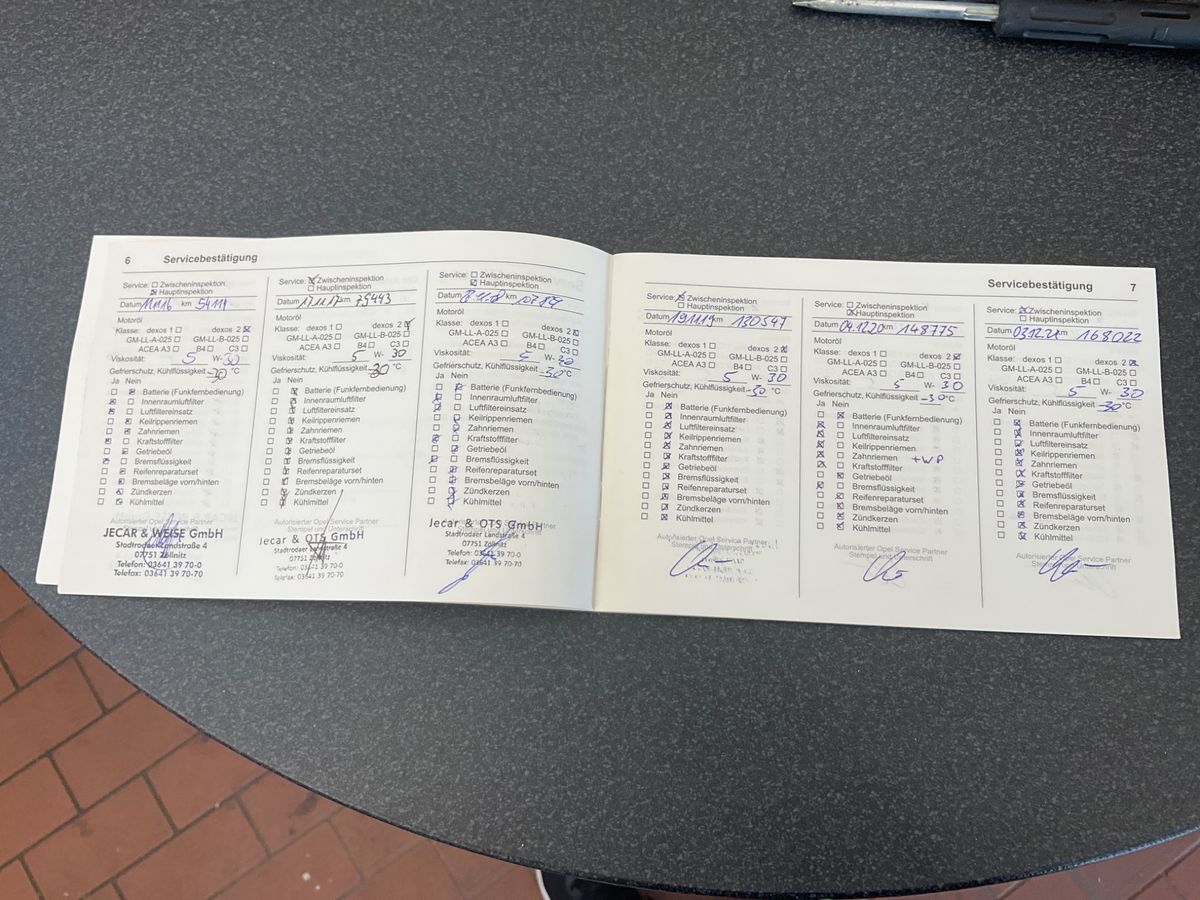 6 Servicebestätigung
Service: Zwischeninspektion
Hauptinspektion
Datum 11.11.16 km 54111
Motoröl
Klasse: dexos 1 dexos 2
GM-LL-A-025 GM-LL-B-025
ACEA A3 B4 C3
Viskosität: 5 W- 30
Gefrierschutz, Kühlflüssigkeit -30 °C
Ja Nein
Batterie (Funkfernbedienung)
Innenraumluftfilter
Luftfiltereinsatz
Keilrippenriemen
Zahnriemen
Kraftstofffilter
Getriebeöl
Bremsflüssigkeit
Reifenreparaturset
Bremsbeläge vorn/hinten
Zündkerzen
Kühlmittel
Autorisierter Opel Service Partner
JECAR & WEISE GmbH
Stadtrodaer Landstraße 4
07751 Zöllnitz
Telefon: 03641 39 70-0
Telefax: 03641 39 70-70
Service: Zwischeninspektion
Hauptinspektion
Datum 17.11.17 km 75443
Motoröl
Klasse: dexos 1 dexos 2
GM-LL-A-025 GM-LL-B-025
ACEA A3 B4 C3
Viskosität: 5 W- 30
Gefrierschutz, Kühlflüssigkeit -30 °C
Ja Nein
Batterie (Funkfernbedienung)
Innenraumluftfilter
Luftfiltereinsatz
Keilrippenriemen
Zahnriemen
Kraftstofffilter
Getriebeöl
Bremsflüssigkeit
Reifenreparaturset
Bremsbeläge vorn/hinten
Zündkerzen
Kühlmittel
Autorisierter Opel Service Partner
Stempel und Unterschrift
Jecar & OTS GmbH
Stadtrodaer Landstraße 4
07751 Zöllnitz
Telefon: 03641 39 70-0
Telefax: 03641 39 70-70
Service: Zwischeninspektion
Hauptinspektion
Datum km
Motoröl
Klasse: dexos 1 dexos 2
GM-LL-A-025 GM-LL-B-025
ACEA A3 B4 C3
Viskosität: 5 W- 30
Gefrierschutz, Kühlflüssigkeit -30 °C
Ja Nein
Batterie (Funkfernbedienung)
Innenraumluftfilter
Luftfiltereinsatz
Keilrippenriemen
Zahnriemen
Kraftstofffilter
Getriebeöl
Bremsflüssigkeit
Reifenreparaturset
Bremsbeläge vorn/hinten
Zündkerzen
Kühlmittel
Jecar & OTS GmbH
Stadtrodaer Landstraße 4
07751 Zöllnitz
Telefon: 03641 39 70-0
Telefax: 03641 39 70-70
Servicebestätigung 7
Service: Zwischeninspektion
Hauptinspektion
Datum 19.11.19 km 130547
Motoröl
Klasse: dexos 1 dexos 2
GM-LL-A-025 GM-LL-B-025
ACEA A3 B4 C3
Viskosität: 5 W- 30
Gefrierschutz, Kühlflüssigkeit -30 °C
Ja Nein
Batterie (Funkfernbedienung)
Innenraumluftfilter
Luftfiltereinsatz
Keilrippenriemen
Zahnriemen
Kraftstofffilter
Getriebeöl
Bremsflüssigkeit
Reifenreparaturset
Bremsbeläge vorn/hinten
Zündkerzen
Kühlmittel
Autorisierter Opel Service Partner
Stempel und Unterschrift
Service: Zwischeninspektion
Hauptinspektion
Datum 04.12.20 km 148775
Motoröl
Klasse: dexos 1 dexos 2
GM-LL-A-025 GM-LL-B-025
ACEA A3 B4 C3
Viskosität: 5 W- 30
Gefrierschutz, Kühlflüssigkeit -30 °C
Ja Nein
Batterie (Funkfernbedienung)
Innenraumluftfilter
Luftfiltereinsatz
Keilrippenriemen
Zahnriemen +WP
Kraftstofffilter
Getriebeöl
Bremsflüssigkeit
Reifenreparaturset
Bremsbeläge vorn/hinten
Zündkerzen
Kühlmittel
Autorisierter Opel Service Partner
Stempel und Unterschrift
Service: Zwischeninspektion
Hauptinspektion
Datum 03.12.21 km 168022
Motoröl
Klasse: dexos 1 dexos 2
GM-LL-A-025 GM-LL-B-025
ACEA A3 B4 C3
Viskosität: 5 W- 30
Gefrierschutz, Kühlflüssigkeit -30 °C
Ja Nein
Batterie (Funkfernbedienung)
Innenraumluftfilter
Luftfiltereinsatz
Keilrippenriemen
Zahnriemen
Kraftstofffilter
Getriebeöl
Bremsflüssigkeit
Reifenreparaturset
Bremsbeläge vorn/hinten
Zündkerzen
Kühlmittel
Autorisierter Opel Service Partner
Stempel und Unterschrift